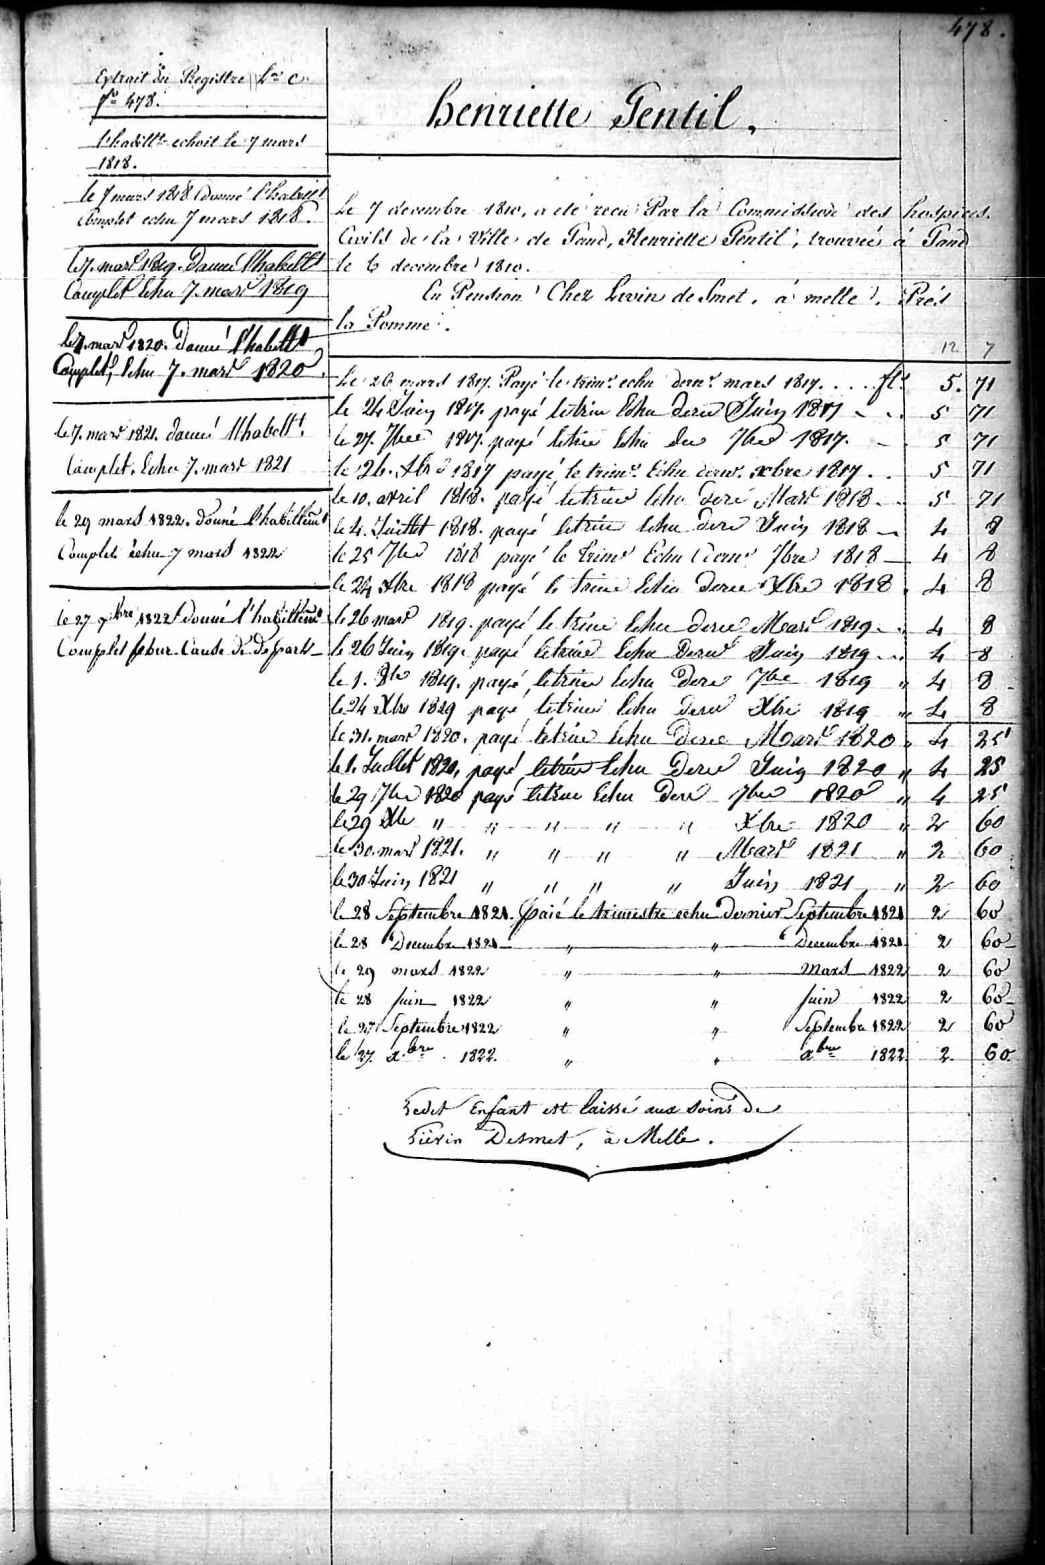 478.
Extrait du Registre Lra C.
fo 478.
l'habillt echoit le 7 mars
1818.
le 7 mars 1818 donné l'habillt
Complet echu 7 mars 1818.
le 7. mars 1819. Donné l'habillt
Complet Echu 7. mars 1819
le 7. mars 1820. donné l'habillt
Complet, Echu 7. mars 1820.
le 7. mars 1821. donné l'habillt.
Complet. Echu 7. mars 1821
le 29 mars 1822. donné l'habillemt
Complet échu 7 mars 1822
le 27 xbre 1822 donné l'habillemt
Complet pour Cause de départ
Henriette Gentil.
Le 7 decembre 1810, a été recu Par la Commission des hospices
Civils de la Ville de Gand, Henriette Gentil, trouvée à Gand
le 6 decembre 1810.
En Pension Chez Livin de Smet, à melle. Prés
la Pomme.
12 7
Le 26 mars 1817. Payé le trimr echu dernr mars 1817. . . . fls 5. 71
le 24 Juin 1817. payé letrim Echu dern Juin 1817 5 71
le 27. 7bre 1817. payé letrim Echu der 7bre 1817. 5 71
le 26. Xbre 1817 payé le trimr. Echu dernr. xbre 1817. 5 71
le 10. avril 1818. payé letrim Echu dern Mars 1818 5 71
le 4. Juillet 1818. payé letrim Echu dern Juin 1818 4 8
le 25 7bre 1818 payé le trimr Echu dernr 7bre 1818 4 8
le 24 Xbre 1818 payé le trim Echu dern Xbre 1818 4 8
le 26 mars 1819. payé le trim Echu dern Mars 1819 4 8
le 26 Juin 1819. payé letrim Echu Dern Juin 1819 4 8
le 1. 8bre 1819. payé, letrim Echu Dern 7bre 1819 " 4 8
le 24 Xbre 1819 payé letrim Echu dern Xbre 1819 " 4 8
le 31. mars 1820. payé letrim Echu Dern Mars 1820 " 4 25
le 1. Juillet 1820, payé letrim Echu Dern Juin 1820 " 4 25
le 29 7bre 1820 payé letrim Echu Dern 7bre 1820 " 4 25
le 29 Xbre " " " " " Xbre 1820 " 2 60
le 30. mars 1821. " " " " Mars 1821 " 2 60
le 30 Juin 1821 " " " " Juin 1821 " 2 60
le 28 Septembre 1821. Paié le trimestre echu dernier Septembre 1821 2 60
le 28 Decembre 1821 " " Decembre 1821 2 60
le 29 mars 1822 " " mars 1822 2 60
le 28 juin 1822 " " juin 1822 2 60
le 27 Septembre 1822 " " Septembre 1822 2 60
le 27. xbre 1822. " " xbre 1822 2 60
Ledit Enfant est laissé aux soins de
Liévin Desmet, à Melle.